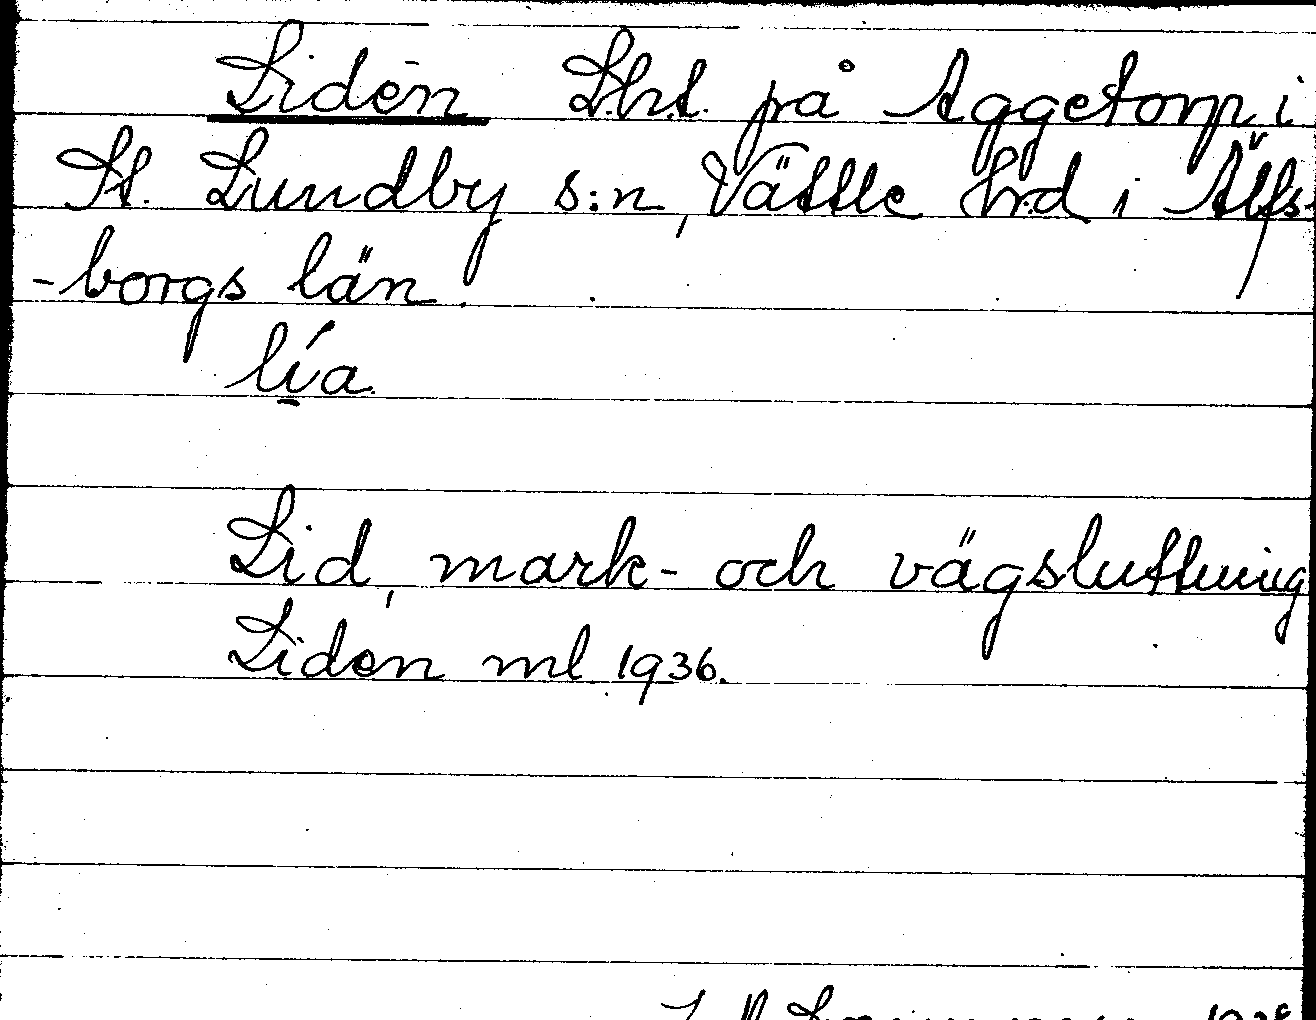 Liden L.h.t. på Aggetorp i
St. Lundby s:n, Vättle hrd i Älfs-
-borgs län.
lía.
Lid, mark- och vägsluttning
Liden ml 1936.